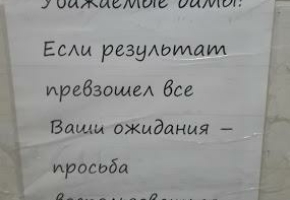 Уважаемые дамы!
Если результат
превзошел все
Ваши ожидания –
просьба